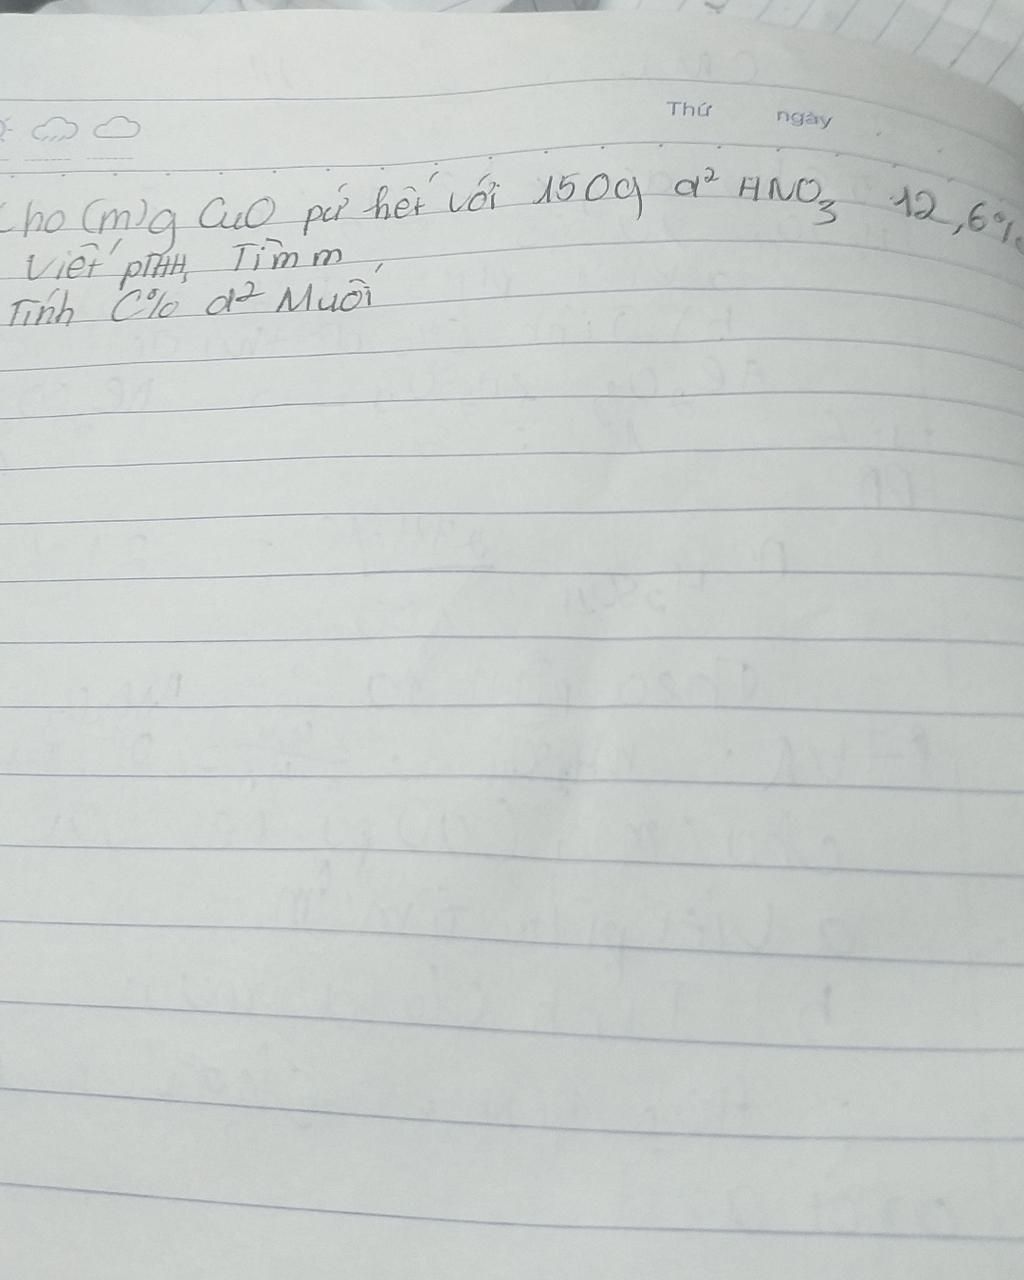 Thứ ngày
Cho (m)g CuO pứ hết với 150g d² HNO₃ 12,6%
Viết pTHH, Tìm m
Tính C% d² Muối